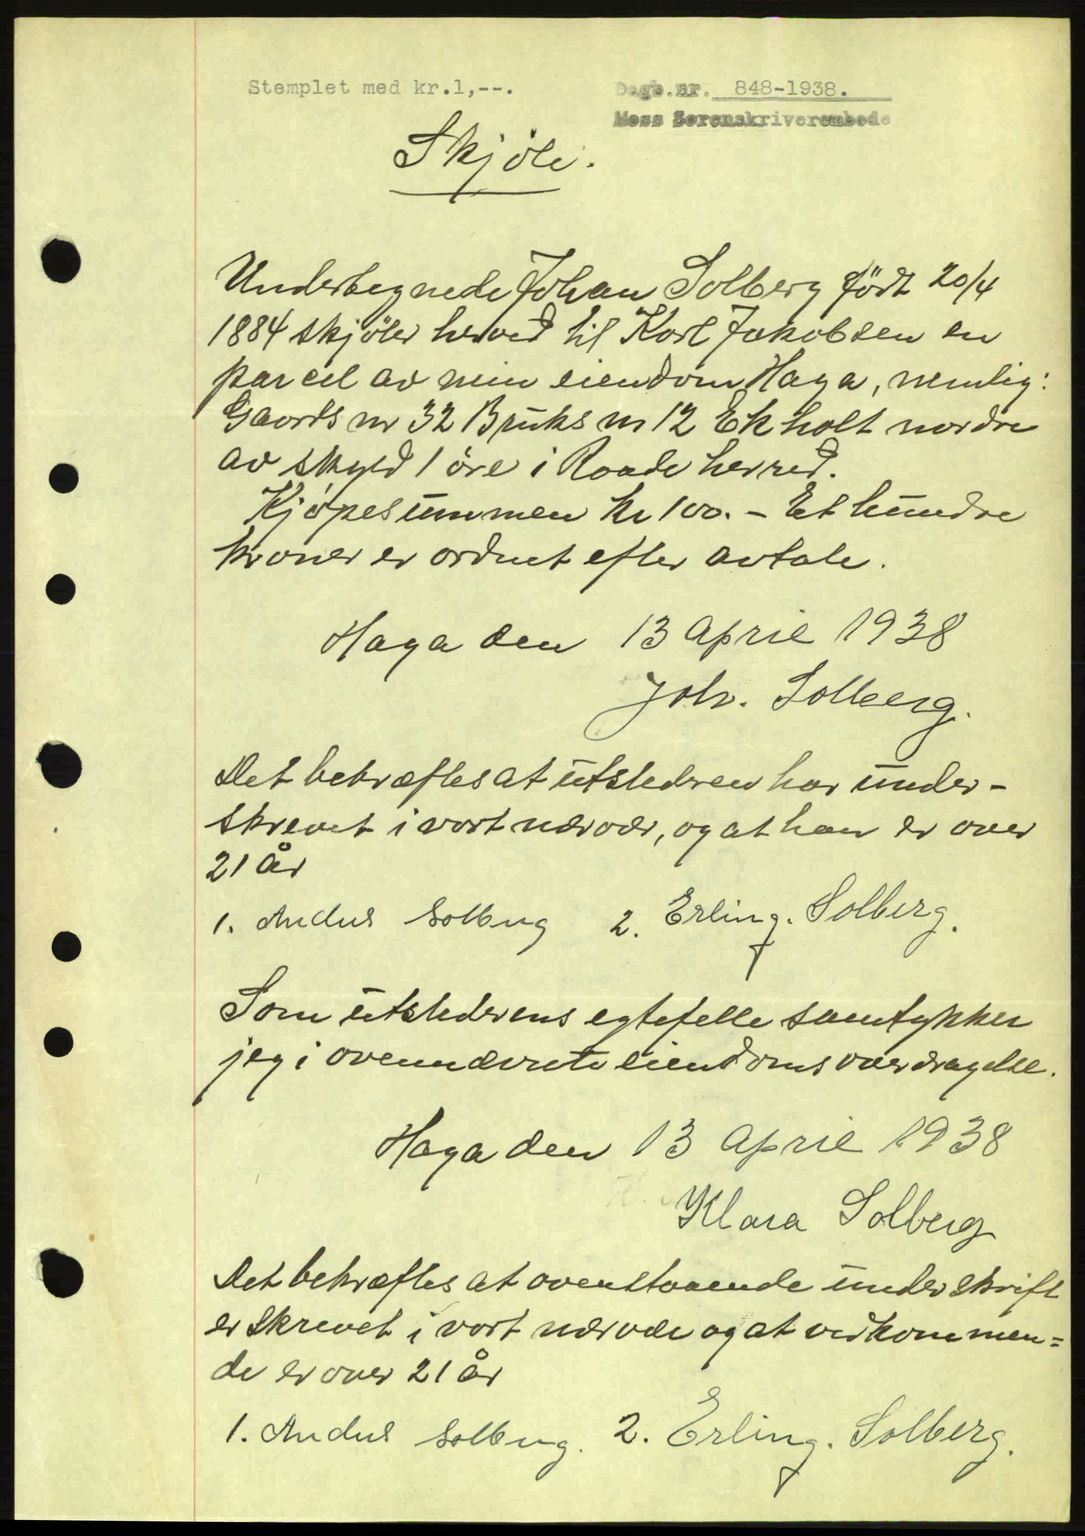 Stemplet med kr.1,--.
Dagb.nr. 848-1938.
Moss Sorenskriverembede
Skjöte.
Undertegnede Johan Solberg födt 20/4
1884 skjöter herved til Karl Jakobsen en
parcel av min eiendom Haga, nemlig:
Gaards nr 32 Bruks nr 12 Ekholt nordre
av skyld 1 öre i Raade herred.
Kjöpesummen kr 100.- Et hundre
kroner er ordnet efter avtale.
Haga den 13 April 1938
Joh. Solberg.
Det bekræftes at utstederen har under-
skrevet i vort nærvær, og at han er over
21 år
1. Andres Solberg 2. Erling. Solberg.
Som utstederens egtefelle samtykker
jeg i ovennævnte eiendomsoverdragelse.
Haga den 13 April 1938
Klara Solberg
Det bekræftes at ovenstaaende underskrift
er skrevet i vort nærvær og at vedkommen=
de er over 21 år
1. Andres Solberg. 2. Erling. Solberg.